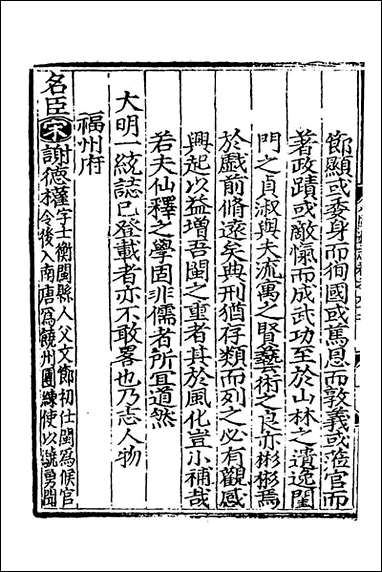 節顯或委身而徇國或篤恩而敦義或蒞官而
著政蹟或敵愾而成武功至於山林之遺逸閨
門之貞淑與夫流寓之賢藝術之良亦彬彬焉
於戲前脩遠矣典刑猶存類而列之必有觀感
興起以益增吾閩之重者其於風化豈小補哉
若夫仙釋之學固非儒者所宜道然
大明一統誌已登載者亦不敢畧也乃志人物
福州府
名臣 宋 謝德權字士衡閩縣人父文節初仕閩為候官
令後入南唐為饒州團練使以驍勇聞